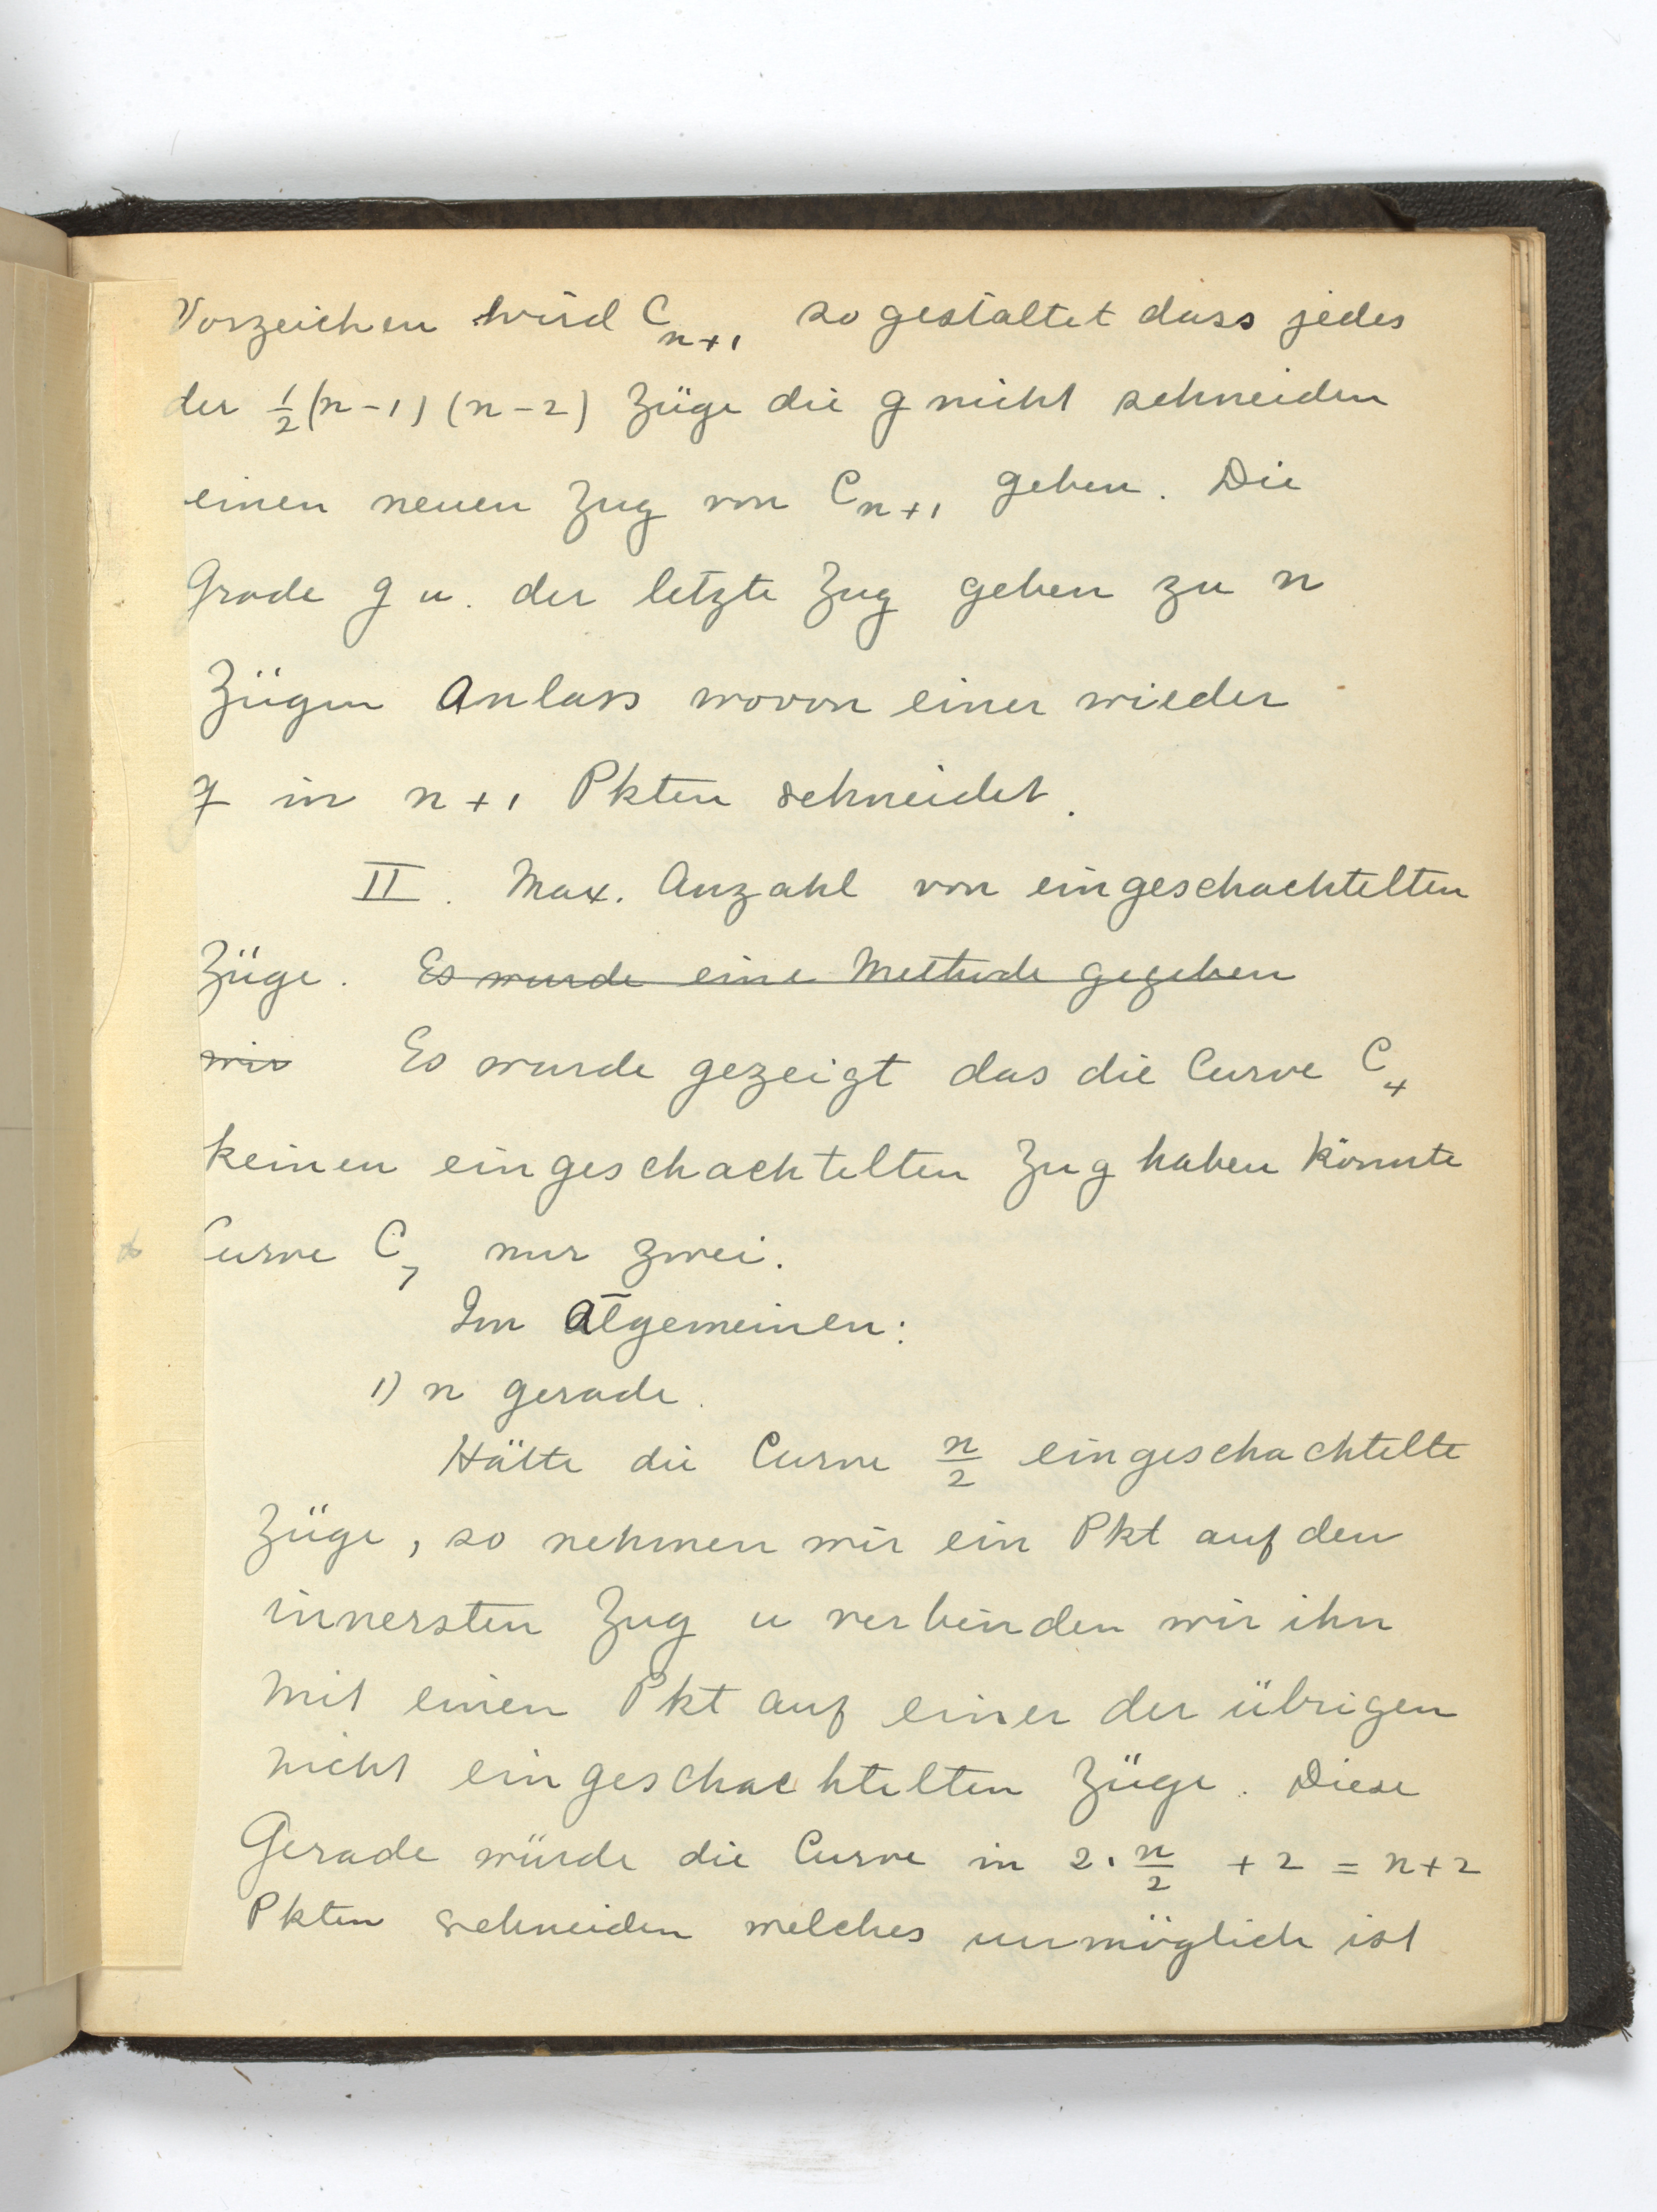 Vorzeichen wird C_{n+1} so gestaltet dass jedes
der 1/2 (n-1)(n-2) Züge die g nicht schneiden
einen neuen Zug von C_{n+1} geben. Die
Grade g u. der letzte Zug geben zu n
Zügen Anlass wovon einer wieder
g in n+1 Pkten schneidet.
II. Max. Anzahl von eingeschachtelten
Züge. Es wurde eine Methode gegeben
wir Es wurde gezeigt das die Curve C_4
keinen eingeschachtelten Zug haben könnte
Curve C_7 nur zwei.
Im Al̄gemeinen:
1) n gerade.
Hätte die Curve n/2 eingeschachtelte
Züge, so nehmen wir ein Pkt auf den
innersten Zug u verbinden wir ihn
mit einen Pkt auf einer der übrigen
nicht eingeschachtelten Züge. Diese
Gerade würde die Curve in 2·n/2 + 2 = n+2
Pkten schneiden welches unmöglich ist